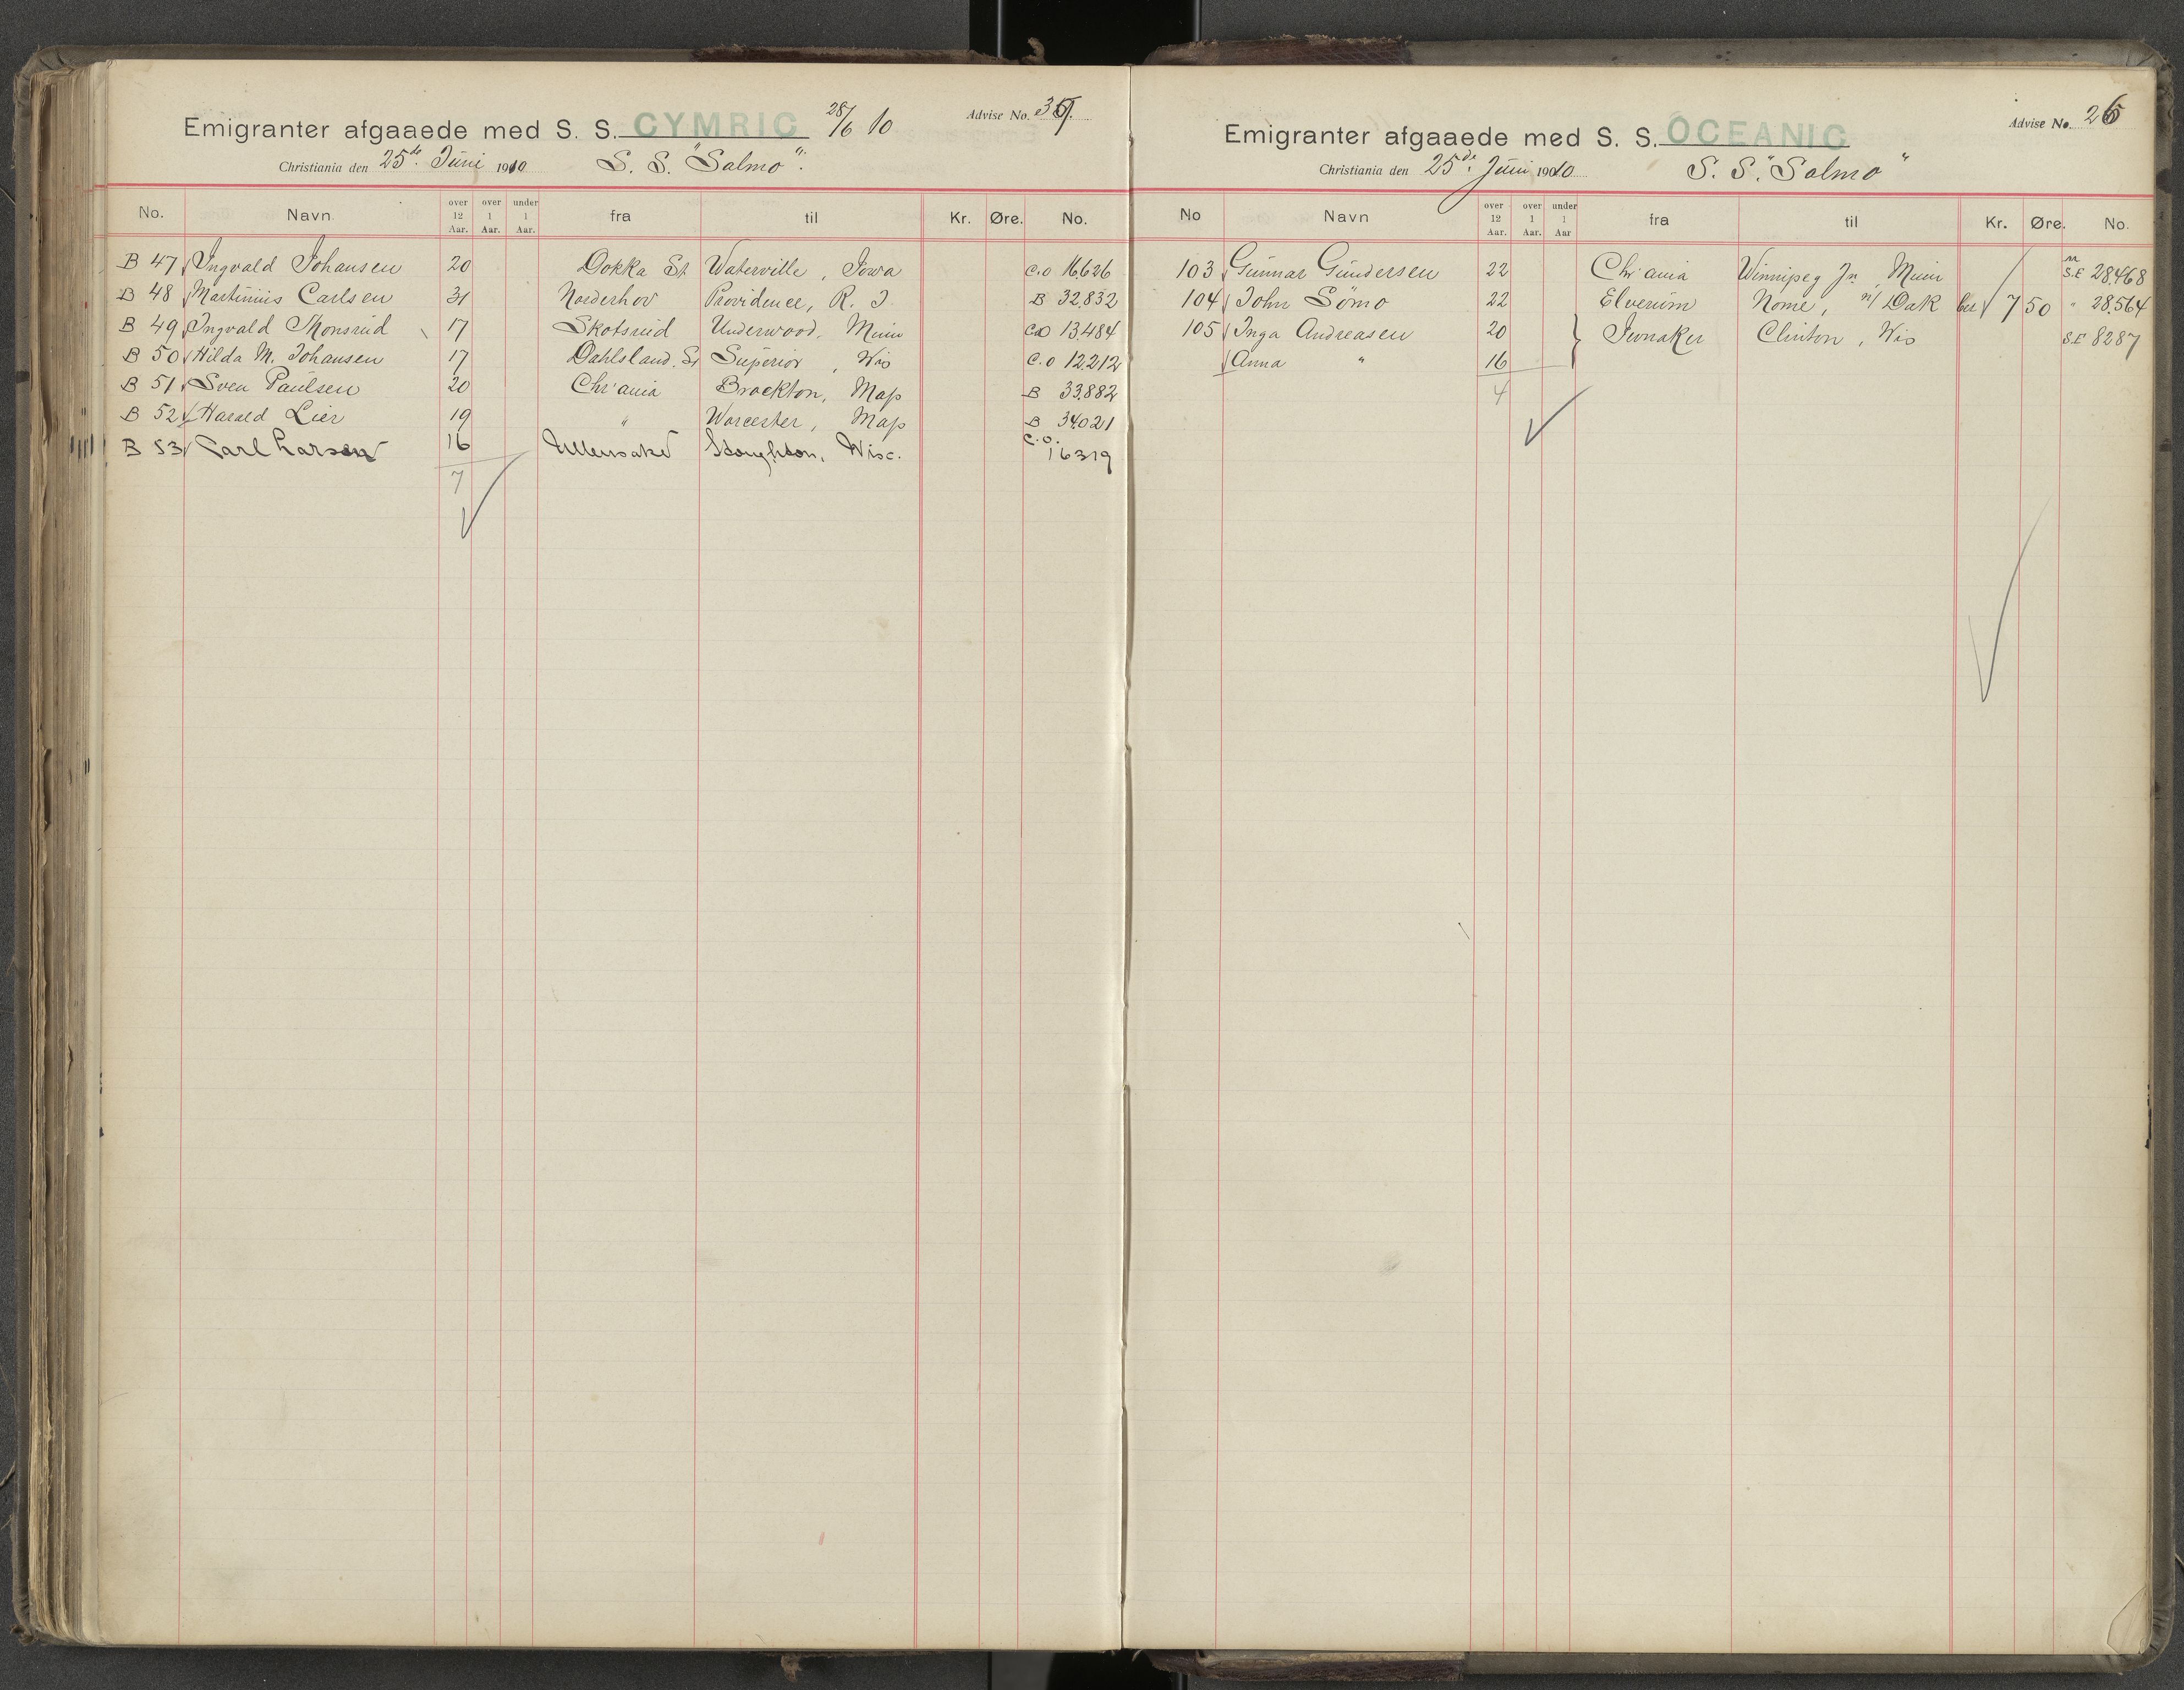 Emigranter afgaaede med S. S. CYMRIC 28/6 10
Advise No.
Christiania den 25de Juni 1910 S. S. "Salmo".
No. Navn. over 12 Aar. over 1 Aar. under 1 Aar. fra til Kr. Øre. No.
B 47 Ingvald Johansen 20 Dokka St Waterville, Iowa C.O 16,626
B 48 Martinius Carlsen 31 Norderhov Providence, R. I. B 32,832
B 49 Ingvald Monsrud 17 Skotsrud Underwood, Minn C.O 13,484
B 50 Hilda M. Johansen 17 Dahlsland. Sv Superior, Wis C.O 12,212
B 51 Sven Paulsen 20 Chr'ania Brockton, Mass B 33,882
B 52 Harald Lier 19 " Worcester, Mass B 34021
B 53 Carl Larsen 16 Ullensaker Stoughton, Wisc. C.O. 16319
7
Emigranter afgaaede med S. S. OCEANIC
Advise No. 26
Christiania den 25de Juni 1910 S. S. "Salmo"
No Navn over 12 Aar. over 1 Aar. under 1 Aar fra til Kr. Øre. No.
103 Gunnar Gundersen 22 Chr'ania Winnipeg Jn, Minn S.E 28,468
104 John Sömo 22 Elverum Nome, N/ Dak 7 50 " 28,564
105 Inga Andreasen 20 Jevnaker Clinton, Wis S.E 8287
Anna " 16
4